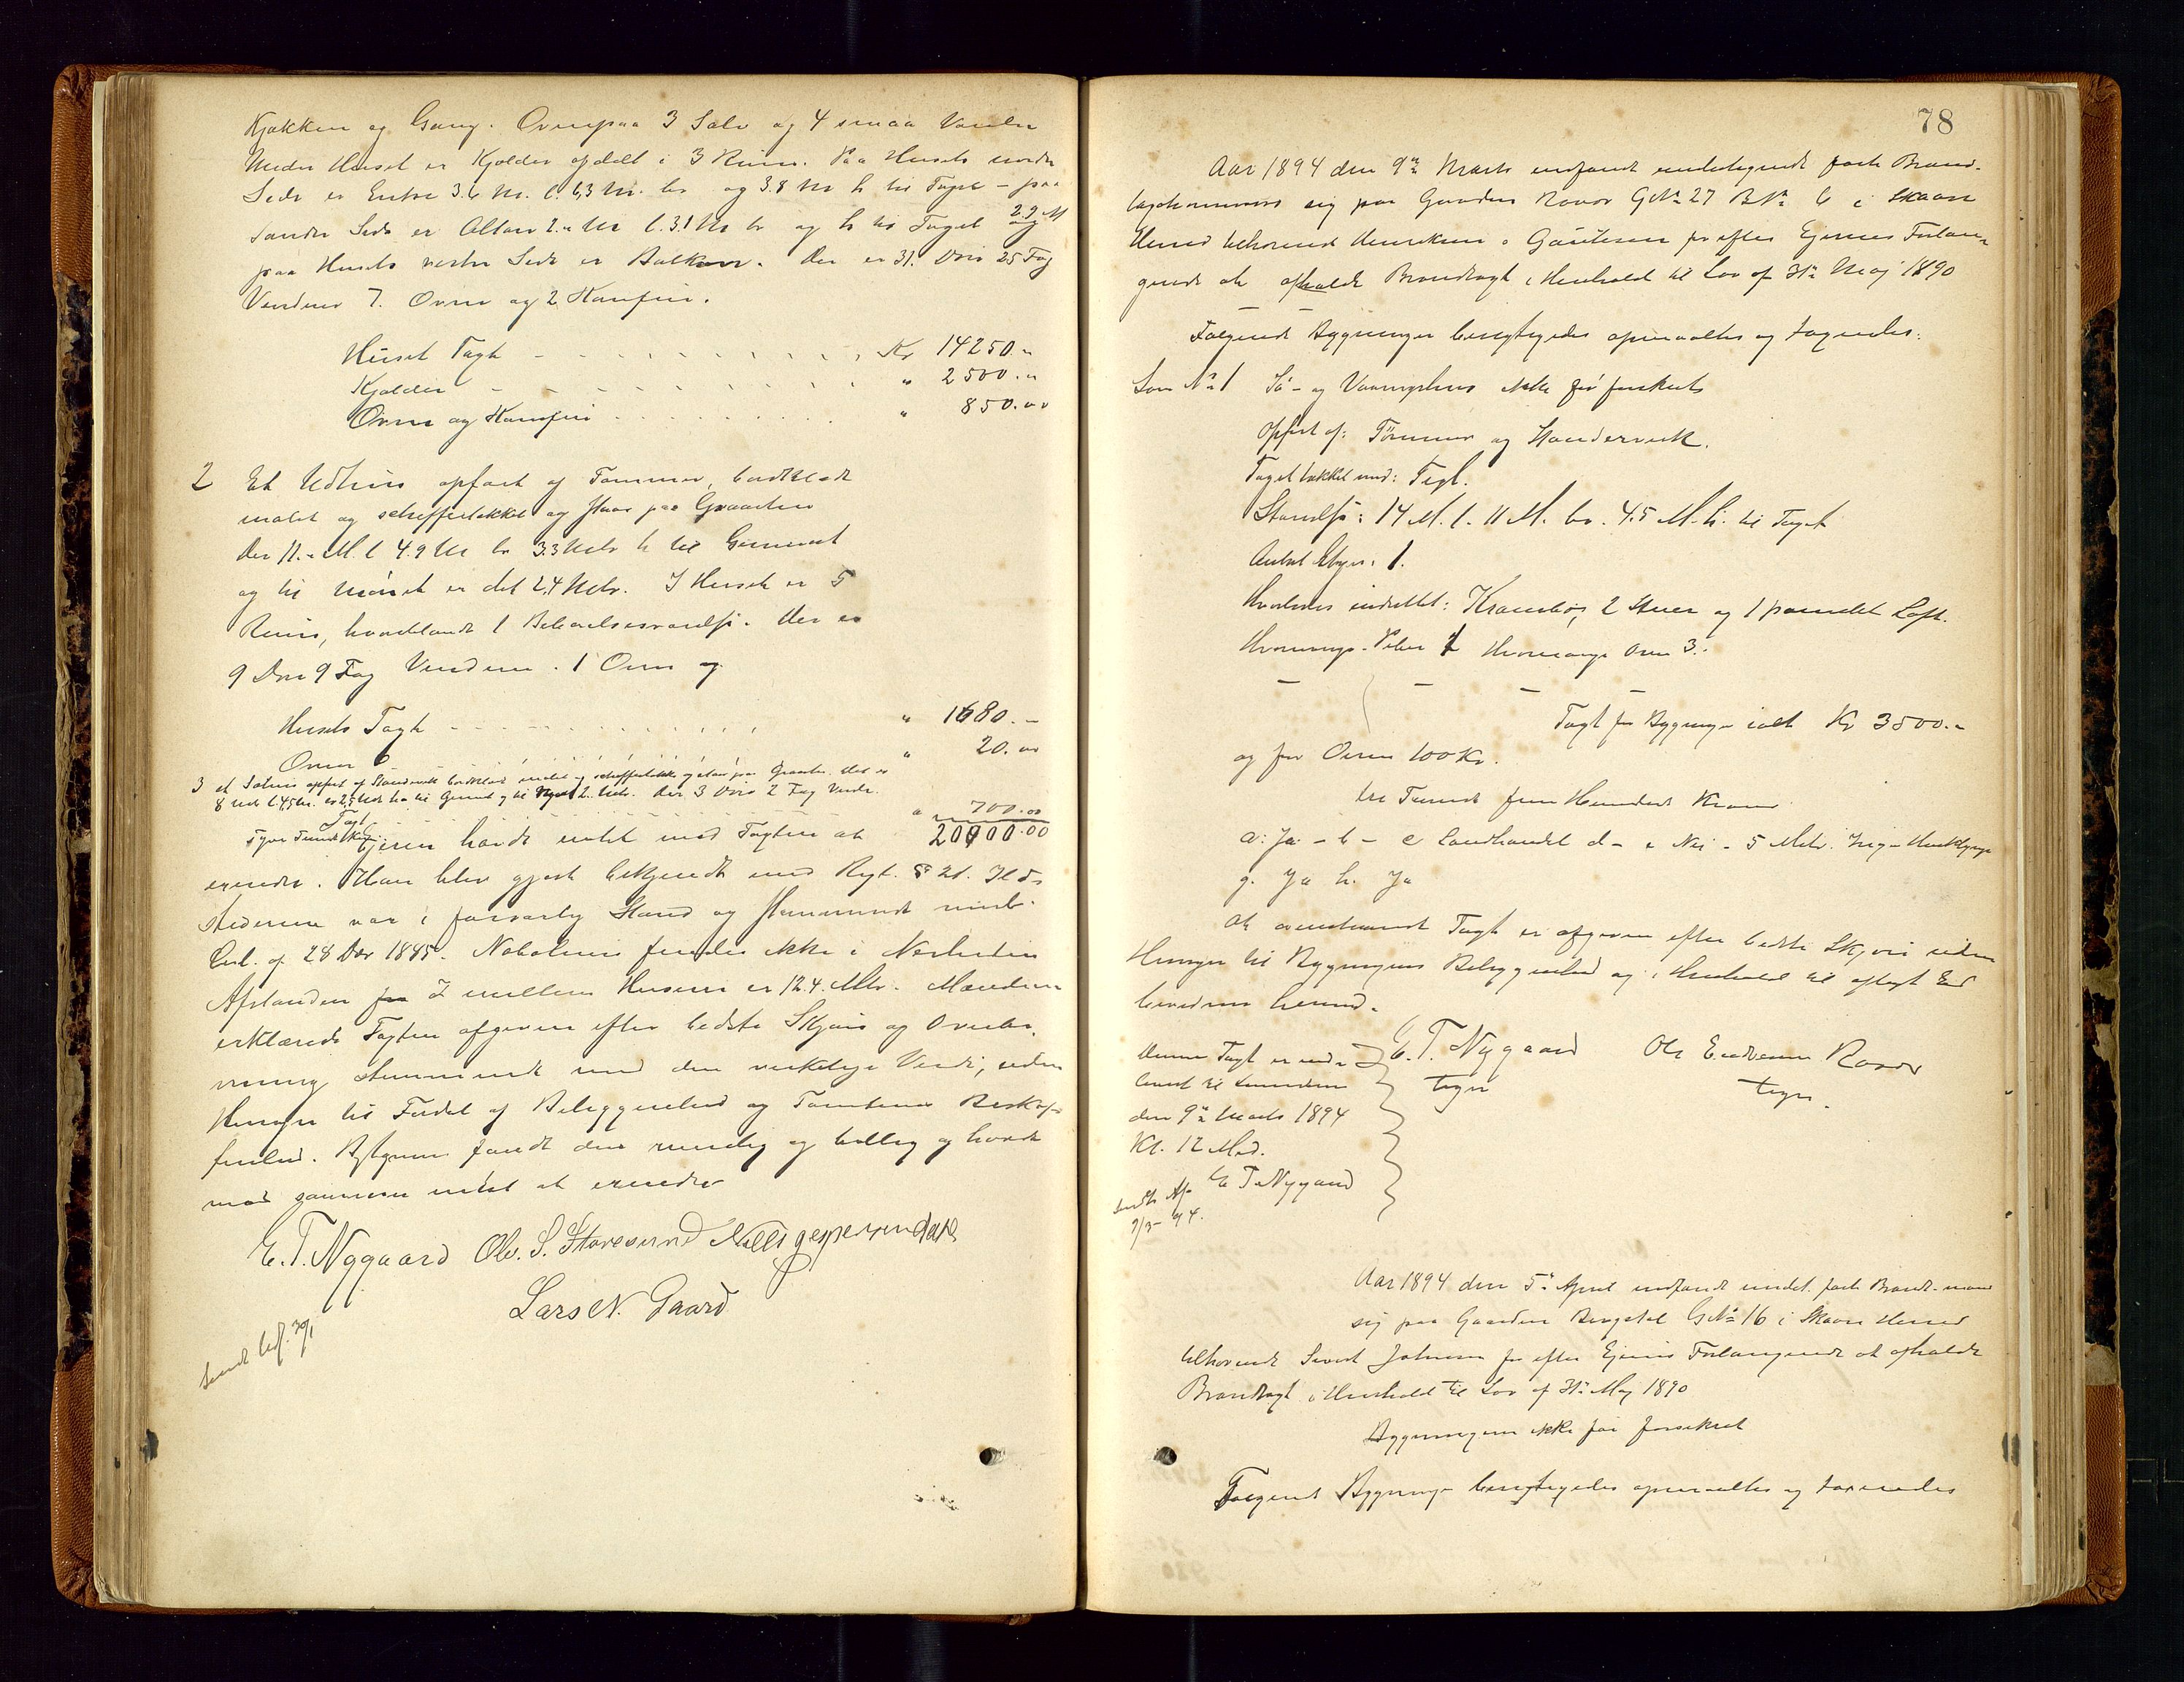 Kjøkken og Gang. Ovenpaa 3 Sale og 4 smaa Værelser
Under Huset er Kjelder afdelt i 3 Rum. Paa Husets nordre
Side er Entre 3.6 M. l. 6,3 M. br og 3.8 M h til Taget - paa
søndre Side er Altan 2.- M l. 3.1 M br og h til Taget 2.9 M og
paa Husets vestre Side er Balkon. Der er 31. Døre 25 Fag
Vinduer 7. Ovne og 2 Komfur.
Huset Taxt - - - Kr 14250.-
Kjelder - - - " 2500.-
Ovne og Komfur . . . " 850.00
2 Et Udhus opført af Tømmer, bordklædt
malet og schifertækket og staar paa Graasten
Der 11.- M. l 4.9 M br 3.3 Metr h til Gesimset
og til Mønet er det 2,4 Metr. I Huset er 5
Rum, hvoriblandt 1 Beboelsesværelse. Der er
9 Døre 9 Fag Vinduer. 1 Ovn og
Husets Taxt - - - " 1680.-
Ovn - - - " 20.00
3 et Søhus opført af Standerverk bordklædt malet og schifertækket og staar paa Graasten. Det er
8 Metr l. 4,5 M. br 2,5 Metr h til Gesims og til Mønet 2. Metr. Der 3 Døre 2 Fag Vinduer.
Taxt - - - " 700.00
tyve Tusind Kr. Ejeren havde intet mod Taxten at 20000.00
erindre. Han blev gjort bekjendt med Regl. § 21. Ild-
stederne var i forsvarlig Stand og stemmende med
Cirl. af 24 Dec 1845. Nabohuse findes ikke i Nærheden
Afstanden fra I mellem Husene er 12.4. Metr. Mændene
erklærede Taxten afgiven efter bedste Skjøn og Overbe-
visning stemmende med den virkelige Værdi, uden
Hensyn til Fordel af Beliggenhed og Tomtens Beskaf-
fenhed. Bestyreren fandt den rimelig og billig og havde
mod sammen intet at erindre
E. T. Nygaard Ole. S. Storesund Nils Jespersen
Lars N. Gaard
Sendt
78
Aar 1894 den 9de Marts indfandt undertegnede faste Brand-
taxtkommission sig paa Gaarden Røvær G No 27 B No 6 i Skaare
Herred tilhørende Henriksen & Gautesen for efter Ejernes Forlan-
gende at afholde Brandtaxt i Henhold til Lov af 31te Maj 1890
Følgende Bygninger besigtigedes opmaaltes og taxeredes:
Løse No 1 Sø- og Vaaningshus ikke før forsikret
Opført af: Tømmer og Standerverk.
Taget tækket med: Tegl.
Størrelse: 14 M. l. 11 M. br. 4.5 M. h. til Taget
Antal Etager: 1.
Hvorledes indrettet: Krambod, 2 Stuer og 1 panelet Loft.
Hvormange Piber 1 Hvormange Ovne 3.
Taxt for Bygningen ialt Kr 3500.-
og for Ovne 100 Kr.
tre Tusinde fem Hundrede Kroner
a: Ja - b - c Landhandel d - e Nei - 5 Metr. Ing-
g. Ja h. Ja
At ovenstaaende Taxt er afgiven efter bedste Skjøn uden
Hensyn til Bygningens Beliggenhed og i Henhold til aflagt Ed
bevidnes herved.
Denne Taxt er ind- E. T. Nygaard Ole Endresen Røvær
leveret til Lensmanden tegn tegn.
den 9de Marts 1894
Kl. 12 Md.
E T Nygaard
Sendt Afs.
9/3-94.
Aar 1894 den 5te April indfandt undert. faste Brandt. mænd
sig paa Gaarden G No 16 i Skaare Herred
tilhørende Sivert Johnsen for efter Ejerens Forlangende at afholde
Brandtaxt i Henhold til Lov af 31te Maj 1890
Bygningen ikke før forsikret
Følgende Bygninger besigtigedes opmaaltes og taxeredes